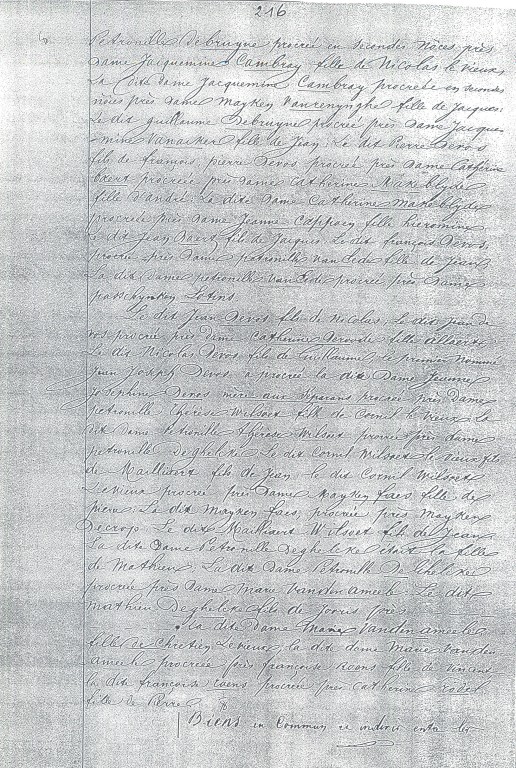 216
Petronille Debruyne procreé en secondes nôces près
dame Jacquemine Cambray fille de Nicolas le vieux
La dite dame Jacquemine Cambray procreée en secondes
nôces près dame Mayken Vanrenynghe fille de Jacques.
Le dit guillaume Debruyne procreé près dame Jacque
mine Vanacker fille de Jean; Le dit Pierre Devos
fils de francois, pierre Devos procreé près dame Catherine
procreée près dame Catherine Makeblyde
fille d'andré. La dite dame Catherine Makeblyde
procreée près dame Jeanne Cappoen fille hieronime
Le dit Jean fils de Jacques. Le dit françois Devos,
procreé près dame petronille van Eede fille de Jean
La dite dame petronille van Eede procreée près dame
passchynken Lotins
Le dit Jean Devos fils de Nicolas, le dit Jean de
vos procreé près dame Catherine fille
Le dit Nicolas Devos fils de Guillaume, le premier nommé
Jean Joseph Devos a procreé la dite Dame Jeanne
Josephine Devos mère aux procreé près dame
petronille Thérèse Wilsoet fille de Cornil le vieux; la
dite dame Petronille thérèse Wilsoet procreée près dame
petronille Deghelcke. Le dit Cornil Wilsoet le vieux fils
de Mailliaert fils de Jean. le dit Cornil Wilsoet
Levieux procreé près dame Mayken faes fille de
pierre. Le dit mayken faes, procreée près Mayken
Decrop. Le dit Mailliaert Wilsoet fils de Jean
La dite Dame Petronille Deghelcke était la fille
de Mathieu. La dite dame Petronille Deghelcke
procreée près dame Marie Vanden ameele. Le dit
mathieu Deghelcke fils de Joris
la dite Dame Marie Vanden ameele
fille de Chretien Levieux, la dite dame Marie Vanden
Ameele procreée près françoise Roens fille de Vincent
la dite françoise Roens procreée près Catherine
fille de Pierre
Biens en Commun et indivis entre les